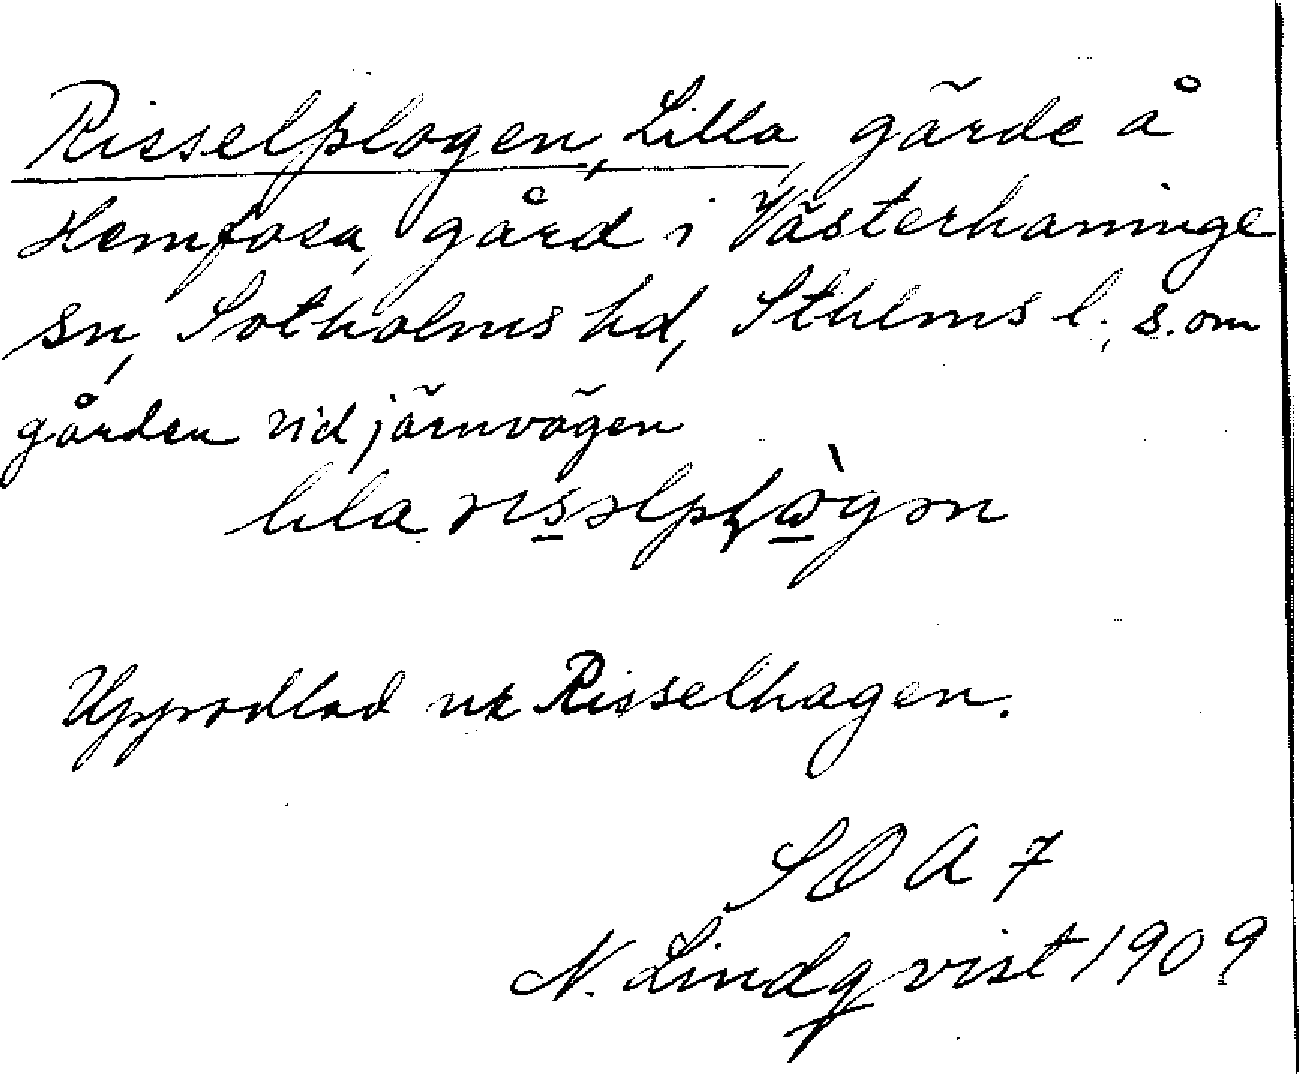 Risselplogen, Lilla, gärde å
Hemfosa, gård i Västerhaninge
sn, Sotholms hd, Sthlms l.; s.om
gården vid järnvägen
lila
Uppodlad ur Risselhagen.
SOA 7
N. Lindqvist 1909